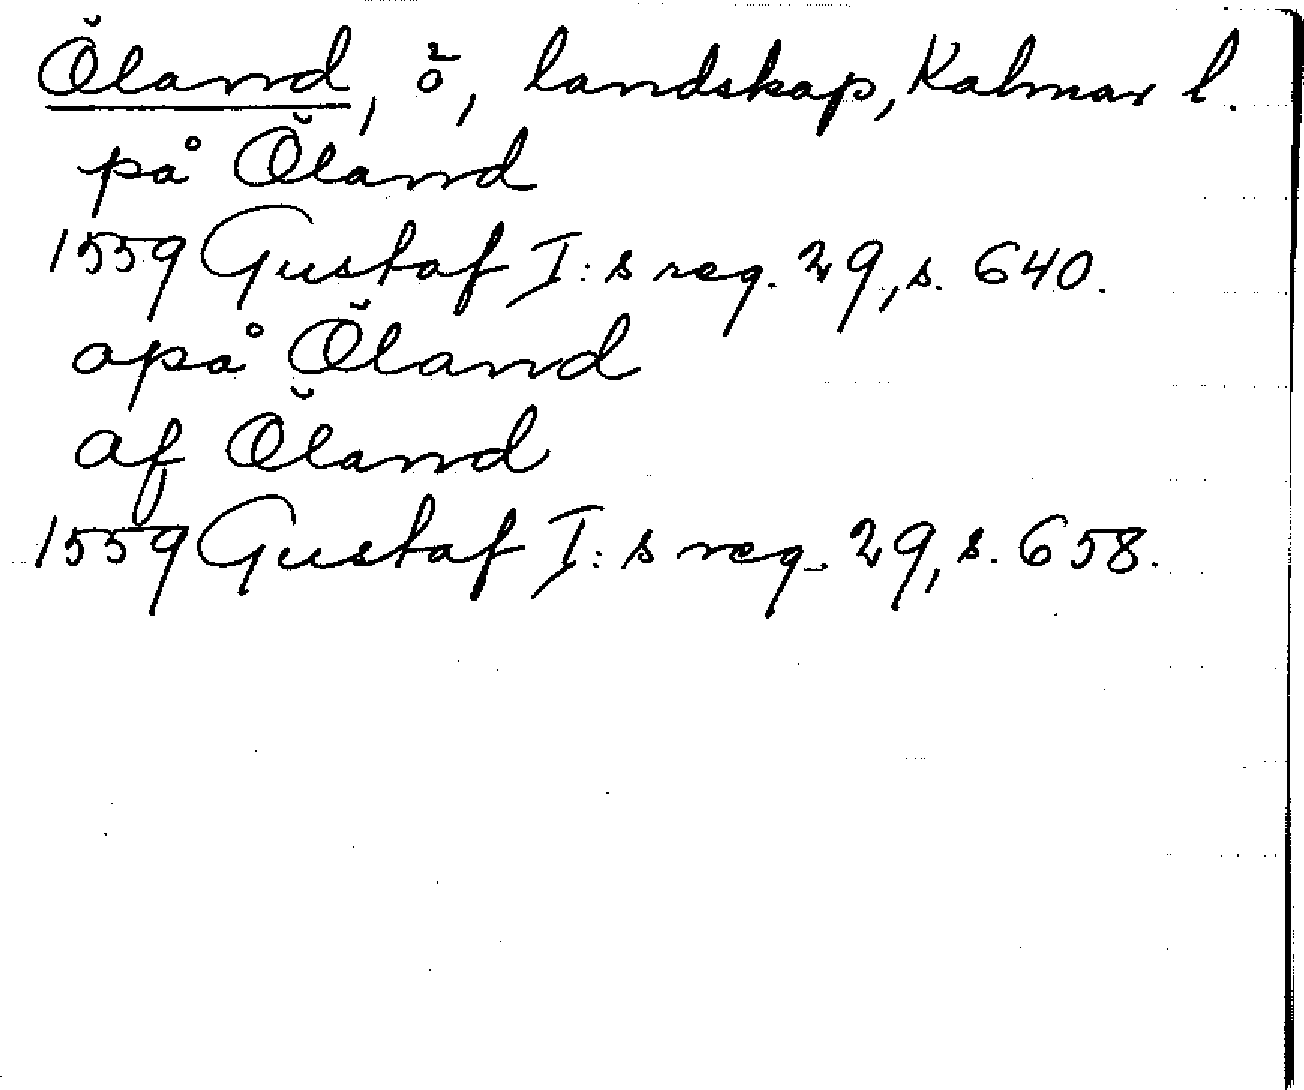 Öland, ö, landskap, Kalmar l.
på Öland
1559 Gustaf I:s reg. 29, s. 640.
opå Öland
af Öland
1559 Gustaf I:s reg. 29, s. 658.